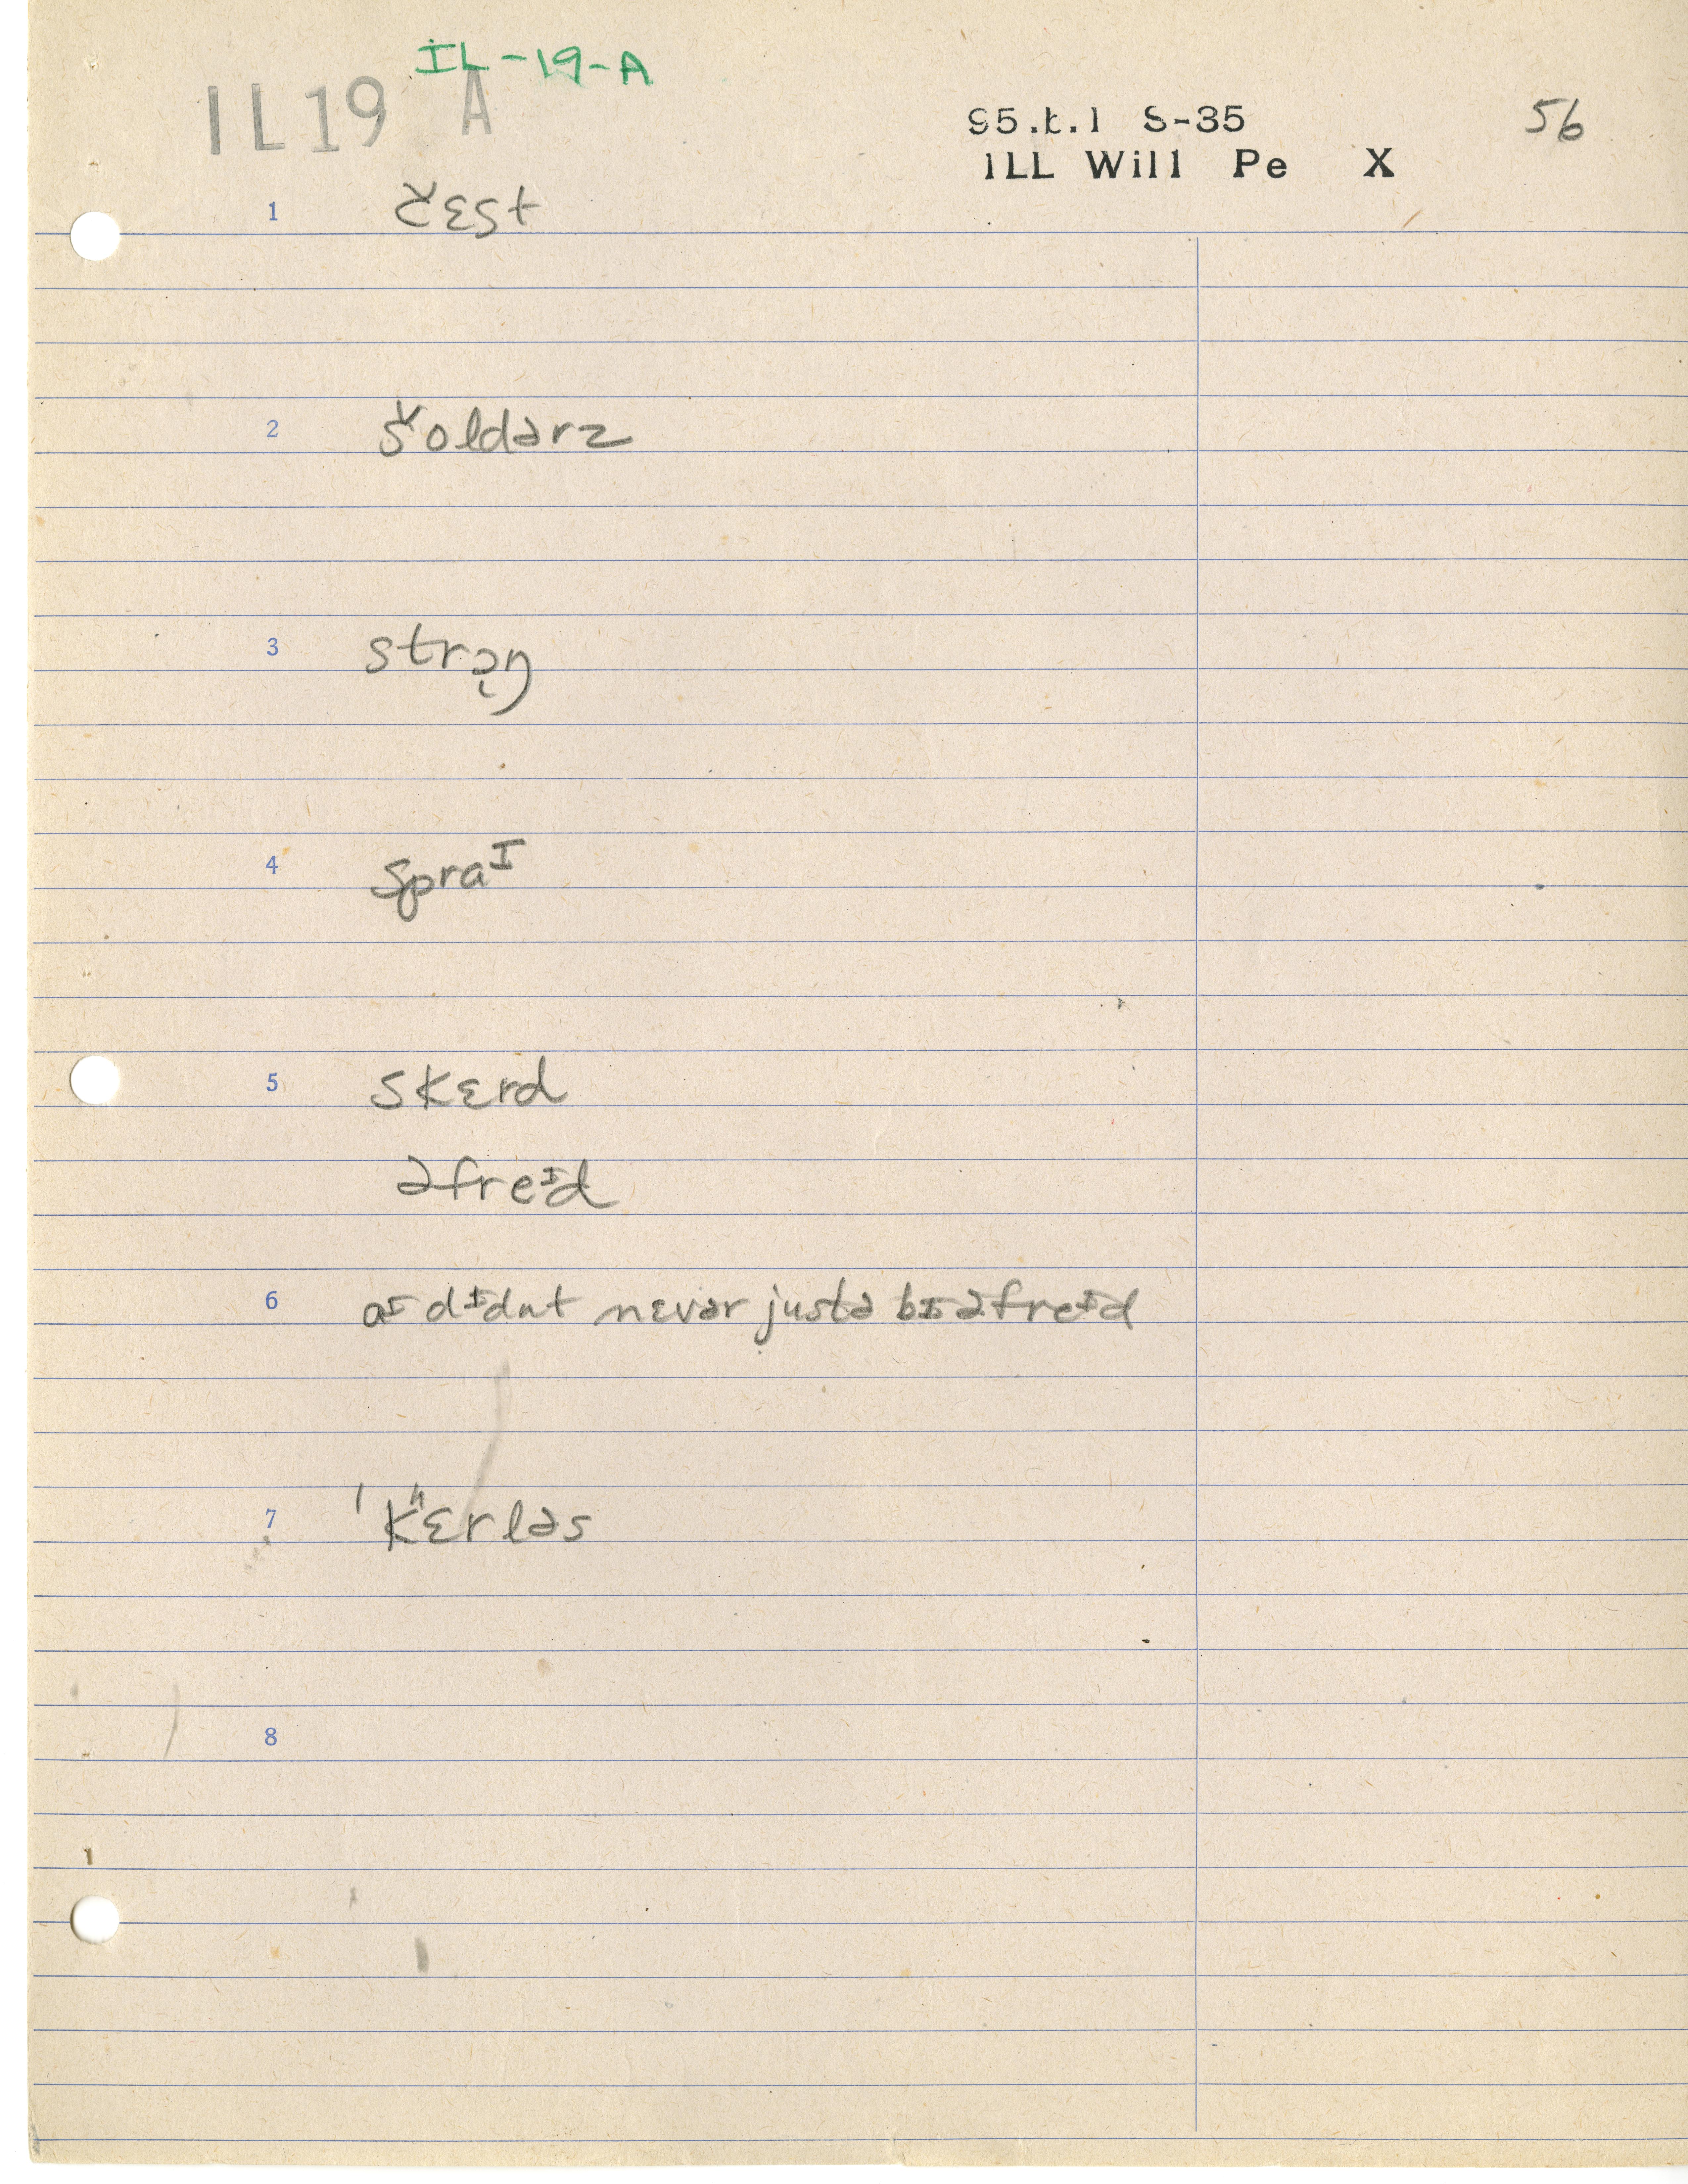 IL-19-A
IL19 A
S5.t.1 S-35
56
ILL Will Pe X
1 čɛst
2 šoldərz
3 strɔ̨ŋ
4 spraᴵ
5 skɛrd
əfreᴵd
6 aᴵ dᴵdnt nɛvər justə bɪ əfreᴵd
7 ˈkʰɛrləs
8